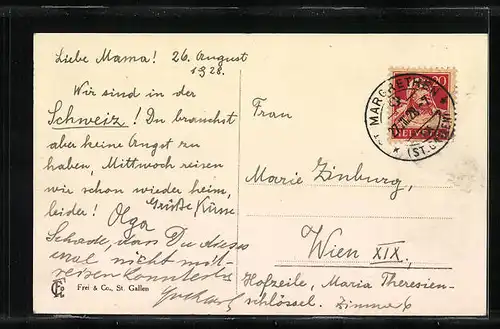 Liebe Mama! 26. August
1928.
Wir sind in der
Schweiz! Du brauchst
aber keine Angst zu
haben, Mittwoch reisen
wir schon wieder heim,
leider! Grüße Küsse
Olga
Schade, dass Du dieses
mal nicht mit-
reisen konntest.
Frei & Co., St. Gallen
Frau
Marie Zinburg,
Wien XIX.,
Hofzeile, Maria Theresien-
schlössel. Zimmer 6
20
MARGRETHEN
HELVETIA
(ST. GALLEN)